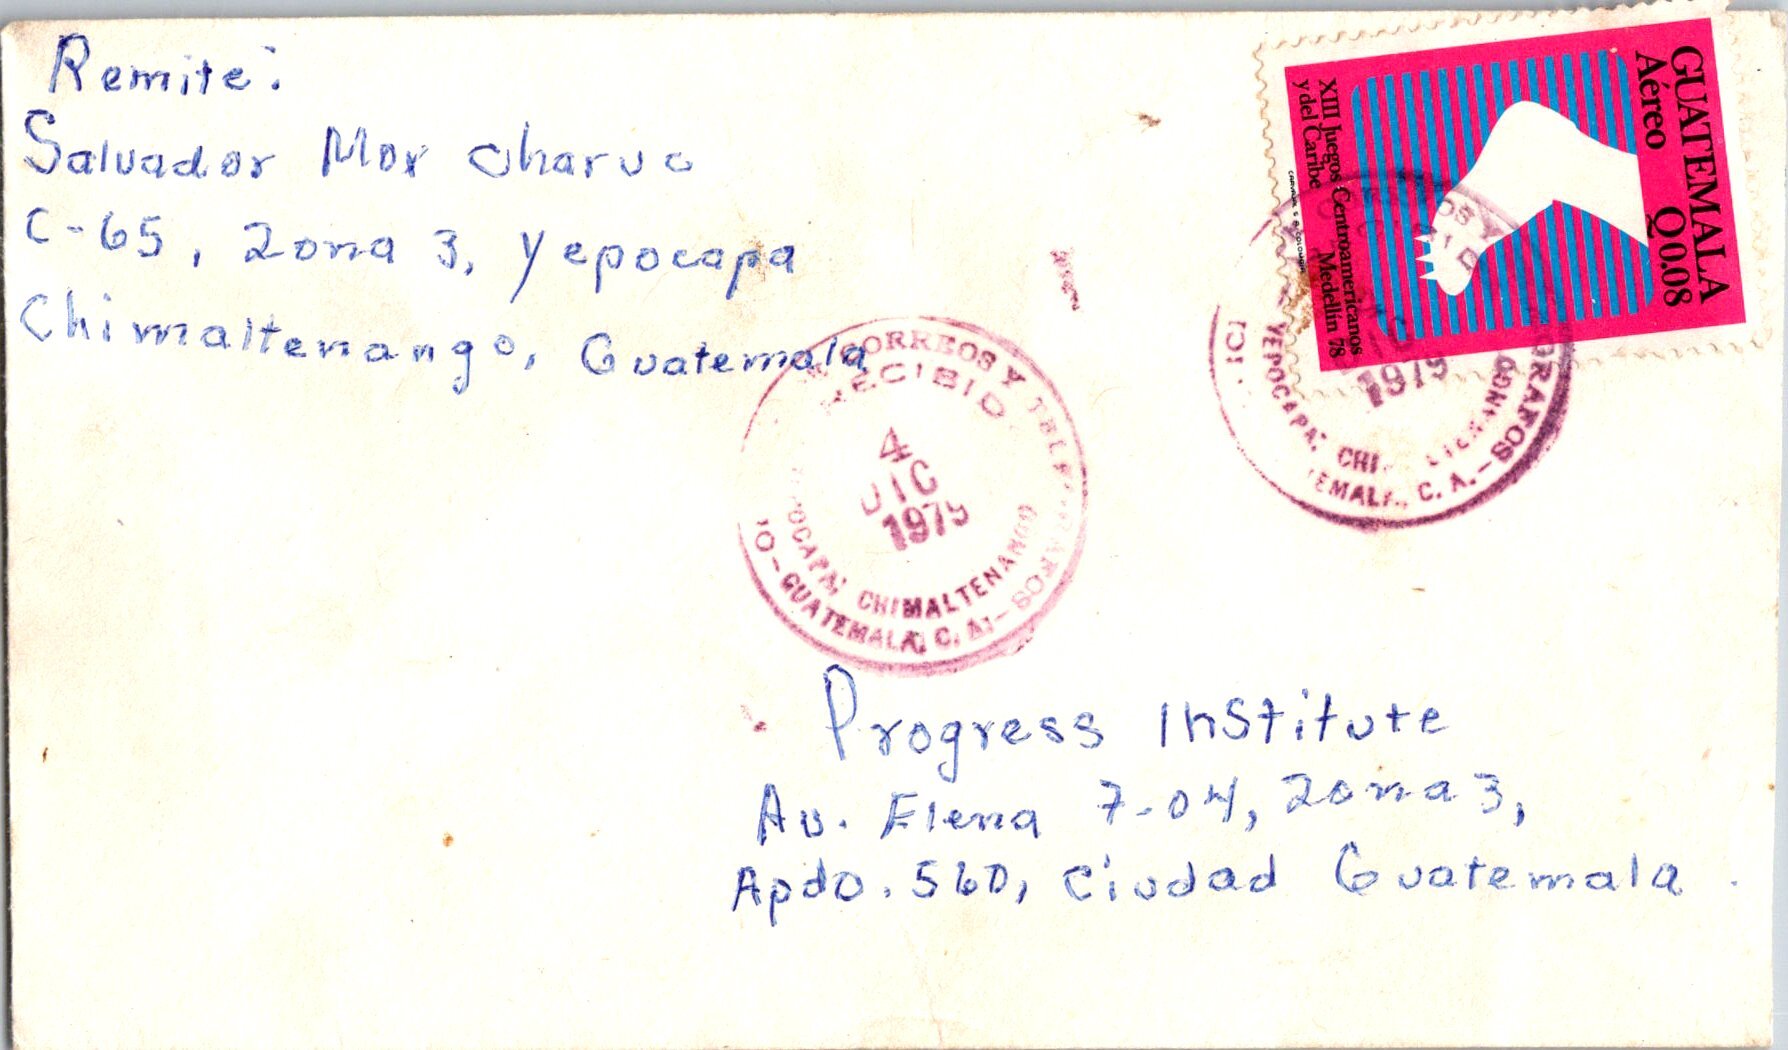 Remite:
Salvador Mox
C-65, Zona 3, Yepocapa
Chimaltenango, Guatemala
GUATEMALA
Aéreo Q0.08
XIII Juegos Centroamericanos
y del Caribe Medellín 78
CORREOS Y
RECIBID
4
DIC
1979
CHIMALTENANGO
GUATEMALA, C. A.
1979
YEPOCAPA, CHI
C. A.
Progress Institute
Av. Elena 7-04, Zona 3,
Apdo. 560, Ciudad Guatemala.